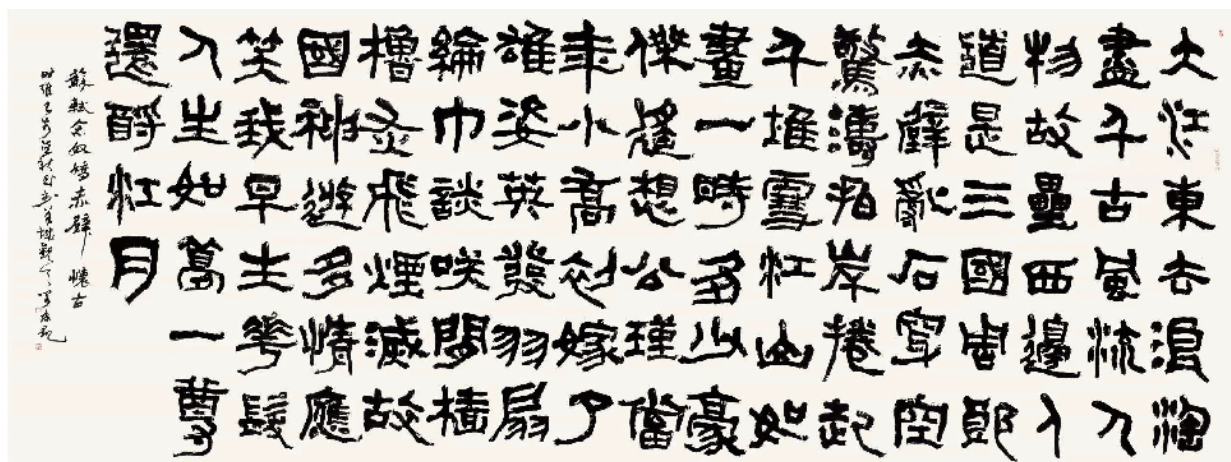 大江東去浪淘
盡千古風流人
物故壘西邊人
道是三國周郎
赤壁亂石穿空
驚濤拍岸捲起
千堆雪江山如
畫一時多少豪
傑遙想公瑾當
年小喬初嫁了
雄姿英發羽扇
綸巾談咲間檣
櫓灰飛煙滅故
國神遊多情應
笑我早生華髮
人生如夢一尊
還酹江月
蘇軾念奴嬌赤壁懷古